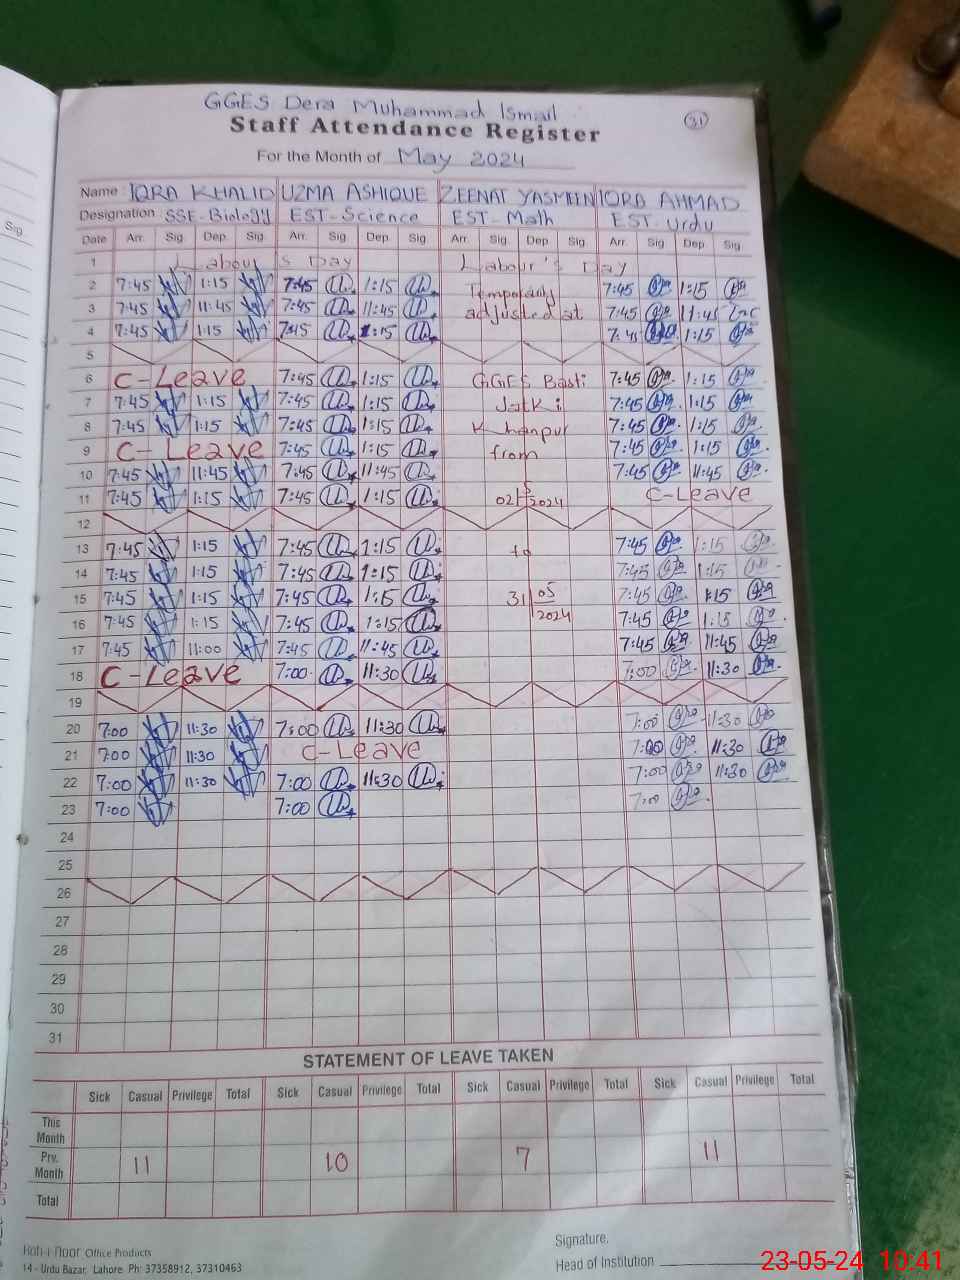 GGES Dera Muhammad Ismail
Staff Attendance Register
31
For the Month of May 2024
Name : IQRA KHALID UZMA ASHIQUE ZEENAT YASMEEN IQRA AHMAD
Designation SSE-Biology EST-Science EST-Math EST-Urdu
Sig.
Date Arr. Sig. Dep. Sig. Arr. Sig. Dep. Sig. Arr. Sig. Dep. Sig. Arr. Sig. Dep. Sig.
1 Labour's Day Labour's Day
2 7:45 1:15 7:45 1:15 Temporarily 7:45 1:15
3 7:45 11:45 7:45 11:45 adjusted at 7:45 11:45
4 7:45 1:15 7:45 1:15 7:45 1:15
5
6 C-Leave 7:45 1:15 GGES Basti 7:45 1:15
7 7:45 1:15 7:45 1:15 Jatki 7:45 1:15
8 7:45 1:15 7:45 1:15 Khanpur 7:45 1:15
9 C-Leave 7:45 1:15 from 7:45 1:15
10 7:45 11:45 7:45 11:45 7:45 11:45
11 7:45 1:15 7:45 1:15 02 5 2024 C-Leave
12
13 7:45 1:15 7:45 1:15 to 7:45 1:15
14 7:45 1:15 7:45 1:15 7:45 1:15
15 7:45 1:15 7:45 1:15 31 05 2024 7:45 1:15
16 7:45 1:15 7:45 1:15 7:45 1:15
17 7:45 11:00 7:45 11:45 7:45 11:45
18 C-Leave 7:00 11:30 7:00 11:30
19
20 7:00 11:30 7:00 11:30 7:00 11:30
21 7:00 11:30 C-Leave 7:00 11:30
22 7:00 11:30 7:00 11:30 7:00 11:30
23 7:00 7:00 7:00
24
25
26
27
28
29
30
31
STATEMENT OF LEAVE TAKEN
Sick Casual Privilege Total Sick Casual Privilege Total Sick Casual Privilege Total Sick Casual Privilege Total
This Month
Prv. Month 11 10 7 11
Total
Koh-i-Noor Office Products
14 - Urdu Bazar. Lahore Ph: 37358912, 37310463
Signature.
Head of Institution
23-05-24 10:41